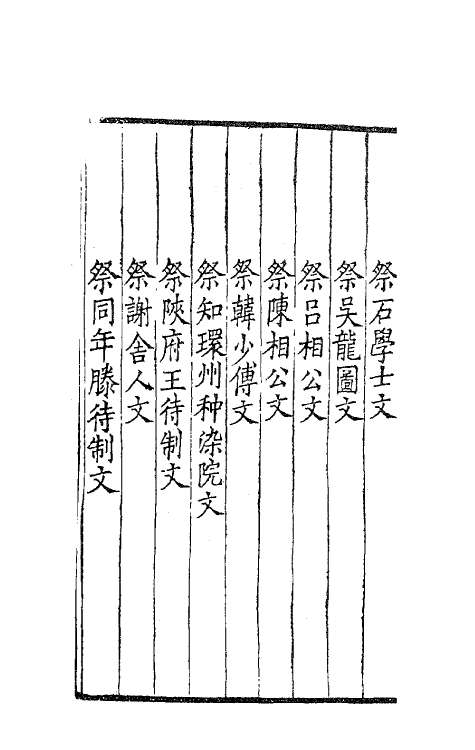 祭石學士文
祭吴龍圖文
祭吕相公文
祭陳相公文
祭韓少傅文
祭知環州种染院文
祭陜府王待制文
祭謝舍人文
祭同年滕待制文